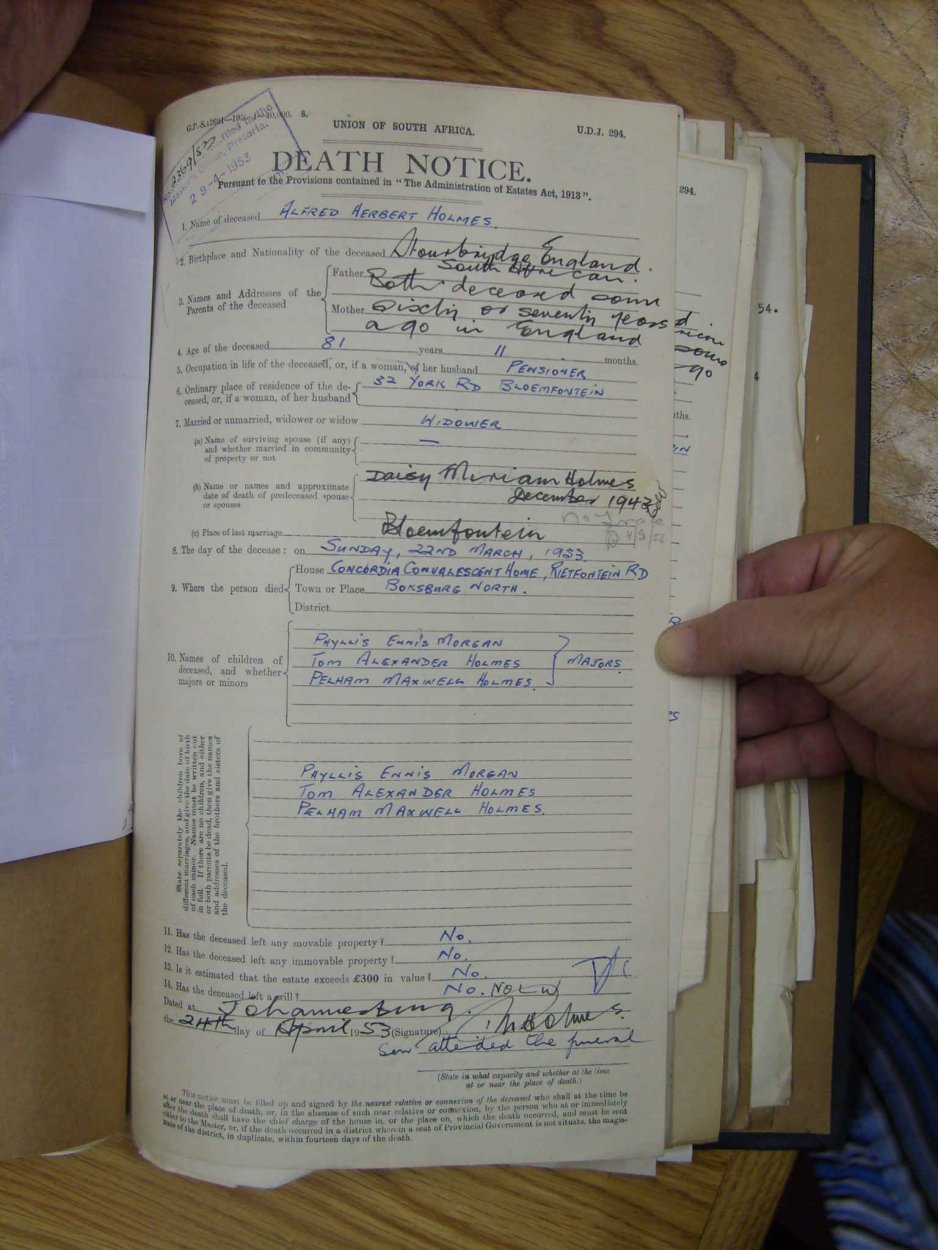 S.
UNION OF SOUTH AFRICA.
U.D.J. 294.
2369/53
29-4-1953
DEATH NOTICE.
Pursuant to the Provisions contained in "The Administration of Estates Act, 1913".
1. Name of deceased ALFRED HERBERT HOLMES.
2. Birthplace and Nationality of the deceased Stourbridge, England.
South African.
3. Names and Addresses of the Parents of the deceased
Father Both deceased some
Mother sixty or seventy years
ago in England
4. Age of the deceased 81 years 11 months.
5. Occupation in life of the deceased, or, if a woman, of her husband PENSIONER
6. Ordinary place of residence of the de-
ceased, or, if a woman, of her husband 32 YORK RD BLOEMFONTEIN
7. Married or unmarried, widower or widow WIDOWER
(a) Name of surviving spouse (if any)
and whether married in community
of property or not —
(b) Name or names and approximate
date of death of predeceased spouse
or spouses
Daisy Miriam Holmes
December 1943
(c) Place of last marriage Bloemfontein
8. The day of the decease: on SUNDAY, 22ND MARCH, 1953.
9. Where the person died
House CONCORDIA CONVALESCENT HOME, RIETFONTEIN RD
Town or Place BOKSBURG NORTH.
District
10. Names of children of
deceased, and whether
majors or minors
PHYLLIS ENNIS MORGAN
TOM ALEXANDER HOLMES } MAJORS.
PELHAM MAXWELL HOLMES.
State separately the children born of
different marriages, and give the date of birth
of each minor. Names must be written out
in full. If there are no children, and either
or both parents be dead, then give the names
and addresses of the brothers and sisters of
the deceased.
PHYLLIS ENNIS MORGAN
TOM ALEXANDER HOLMES
PELHAM MAXWELL HOLMES.
11. Has the deceased left any movable property? No.
12. Has the deceased left any immovable property? No.
13. Is it estimated that the estate exceeds £300 in value? No.
14. Has the deceased left a will? No. NOLW
Dated at Johannesburg.
the 24th day of April 1953 (Signature) Holmes.
Son attended the funeral
(State in what capacity and whether at the time
at or near the place of death.)
This notice must be filled up and signed by the nearest relative or connexion of the deceased who shall at the time be
at or near the place of death, or, in the absence of such near relative or connexion, by the person who at or immediately
after the death shall have the chief charge of the house in, or the place on, which the death occurred, and must be sent
either to the Master, or, if the death occurred in a district wherein a seat of Provincial Government is not situate, the magis-
trate of the district, in duplicate, within fourteen days of the death
294.
54.